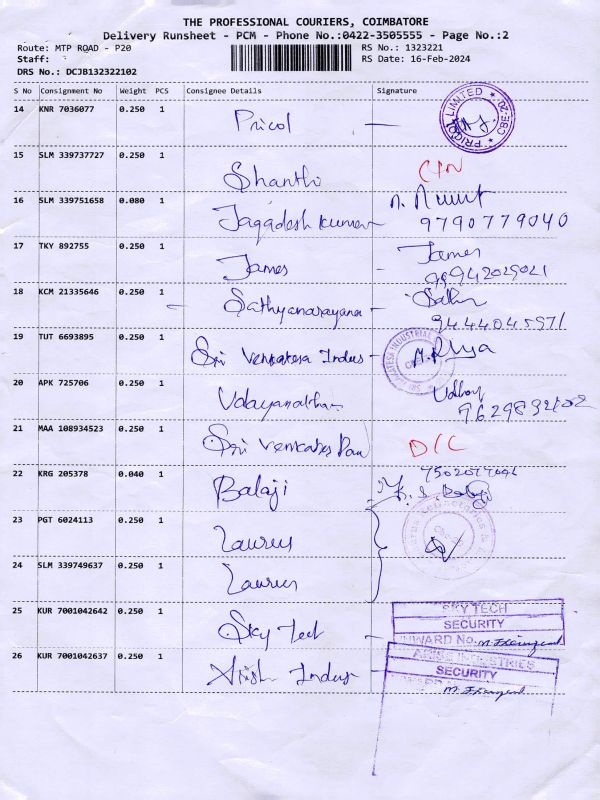 THE PROFESSIONAL COURIERS, COIMBATORE
Delivery Runsheet - PCM - Phone No.:0422-3505555 - Page No.:2
Route: MTP ROAD - P20 RS No.: 1323221
Staff: RS Date: 16-Feb-2024
DRS No.: DCJB132322102
S No Consignment No Weight PCS Consignee Details Signature
14 KNR 7036077 0.250 1 Pricol PRICOL LIMITED CBE-20
15 SLM 339737727 0.250 1 Shanthi
16 SLM 339751658 0.080 1 Jagadesh kumar
9790779040
17 TKY 892755 0.250 1 James James
18 KCM 21335646 0.250 1 Sathyanarayana
9444045971
19 TUT 6693895 0.250 1 Sri Venkatesa Indus
20 APK 725706 0.250 1
21 MAA 108934523 0.250 1 D/C
22 KRG 205378 0.040 1 Balaji
23 PGT 6024113 0.250 1 Laurus
24 SLM 339749637 0.250 1 Laurus
25 KUR 7001042642 0.250 1 Sky Tech SKY TECH
SECURITY
INWARD No.
26 KUR 7001042637 0.250 1 Indus INDUSTRIES
SECURITY